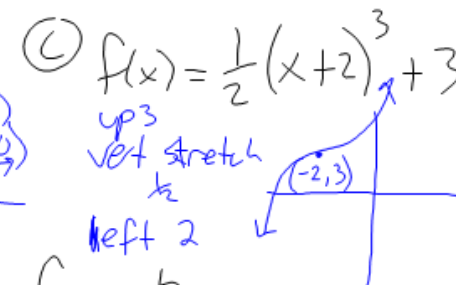 Ⓒ f(x) = 1/2 (x+2)³ + 3
up 3
vert stretch
1/2
left 2
(-2,3)